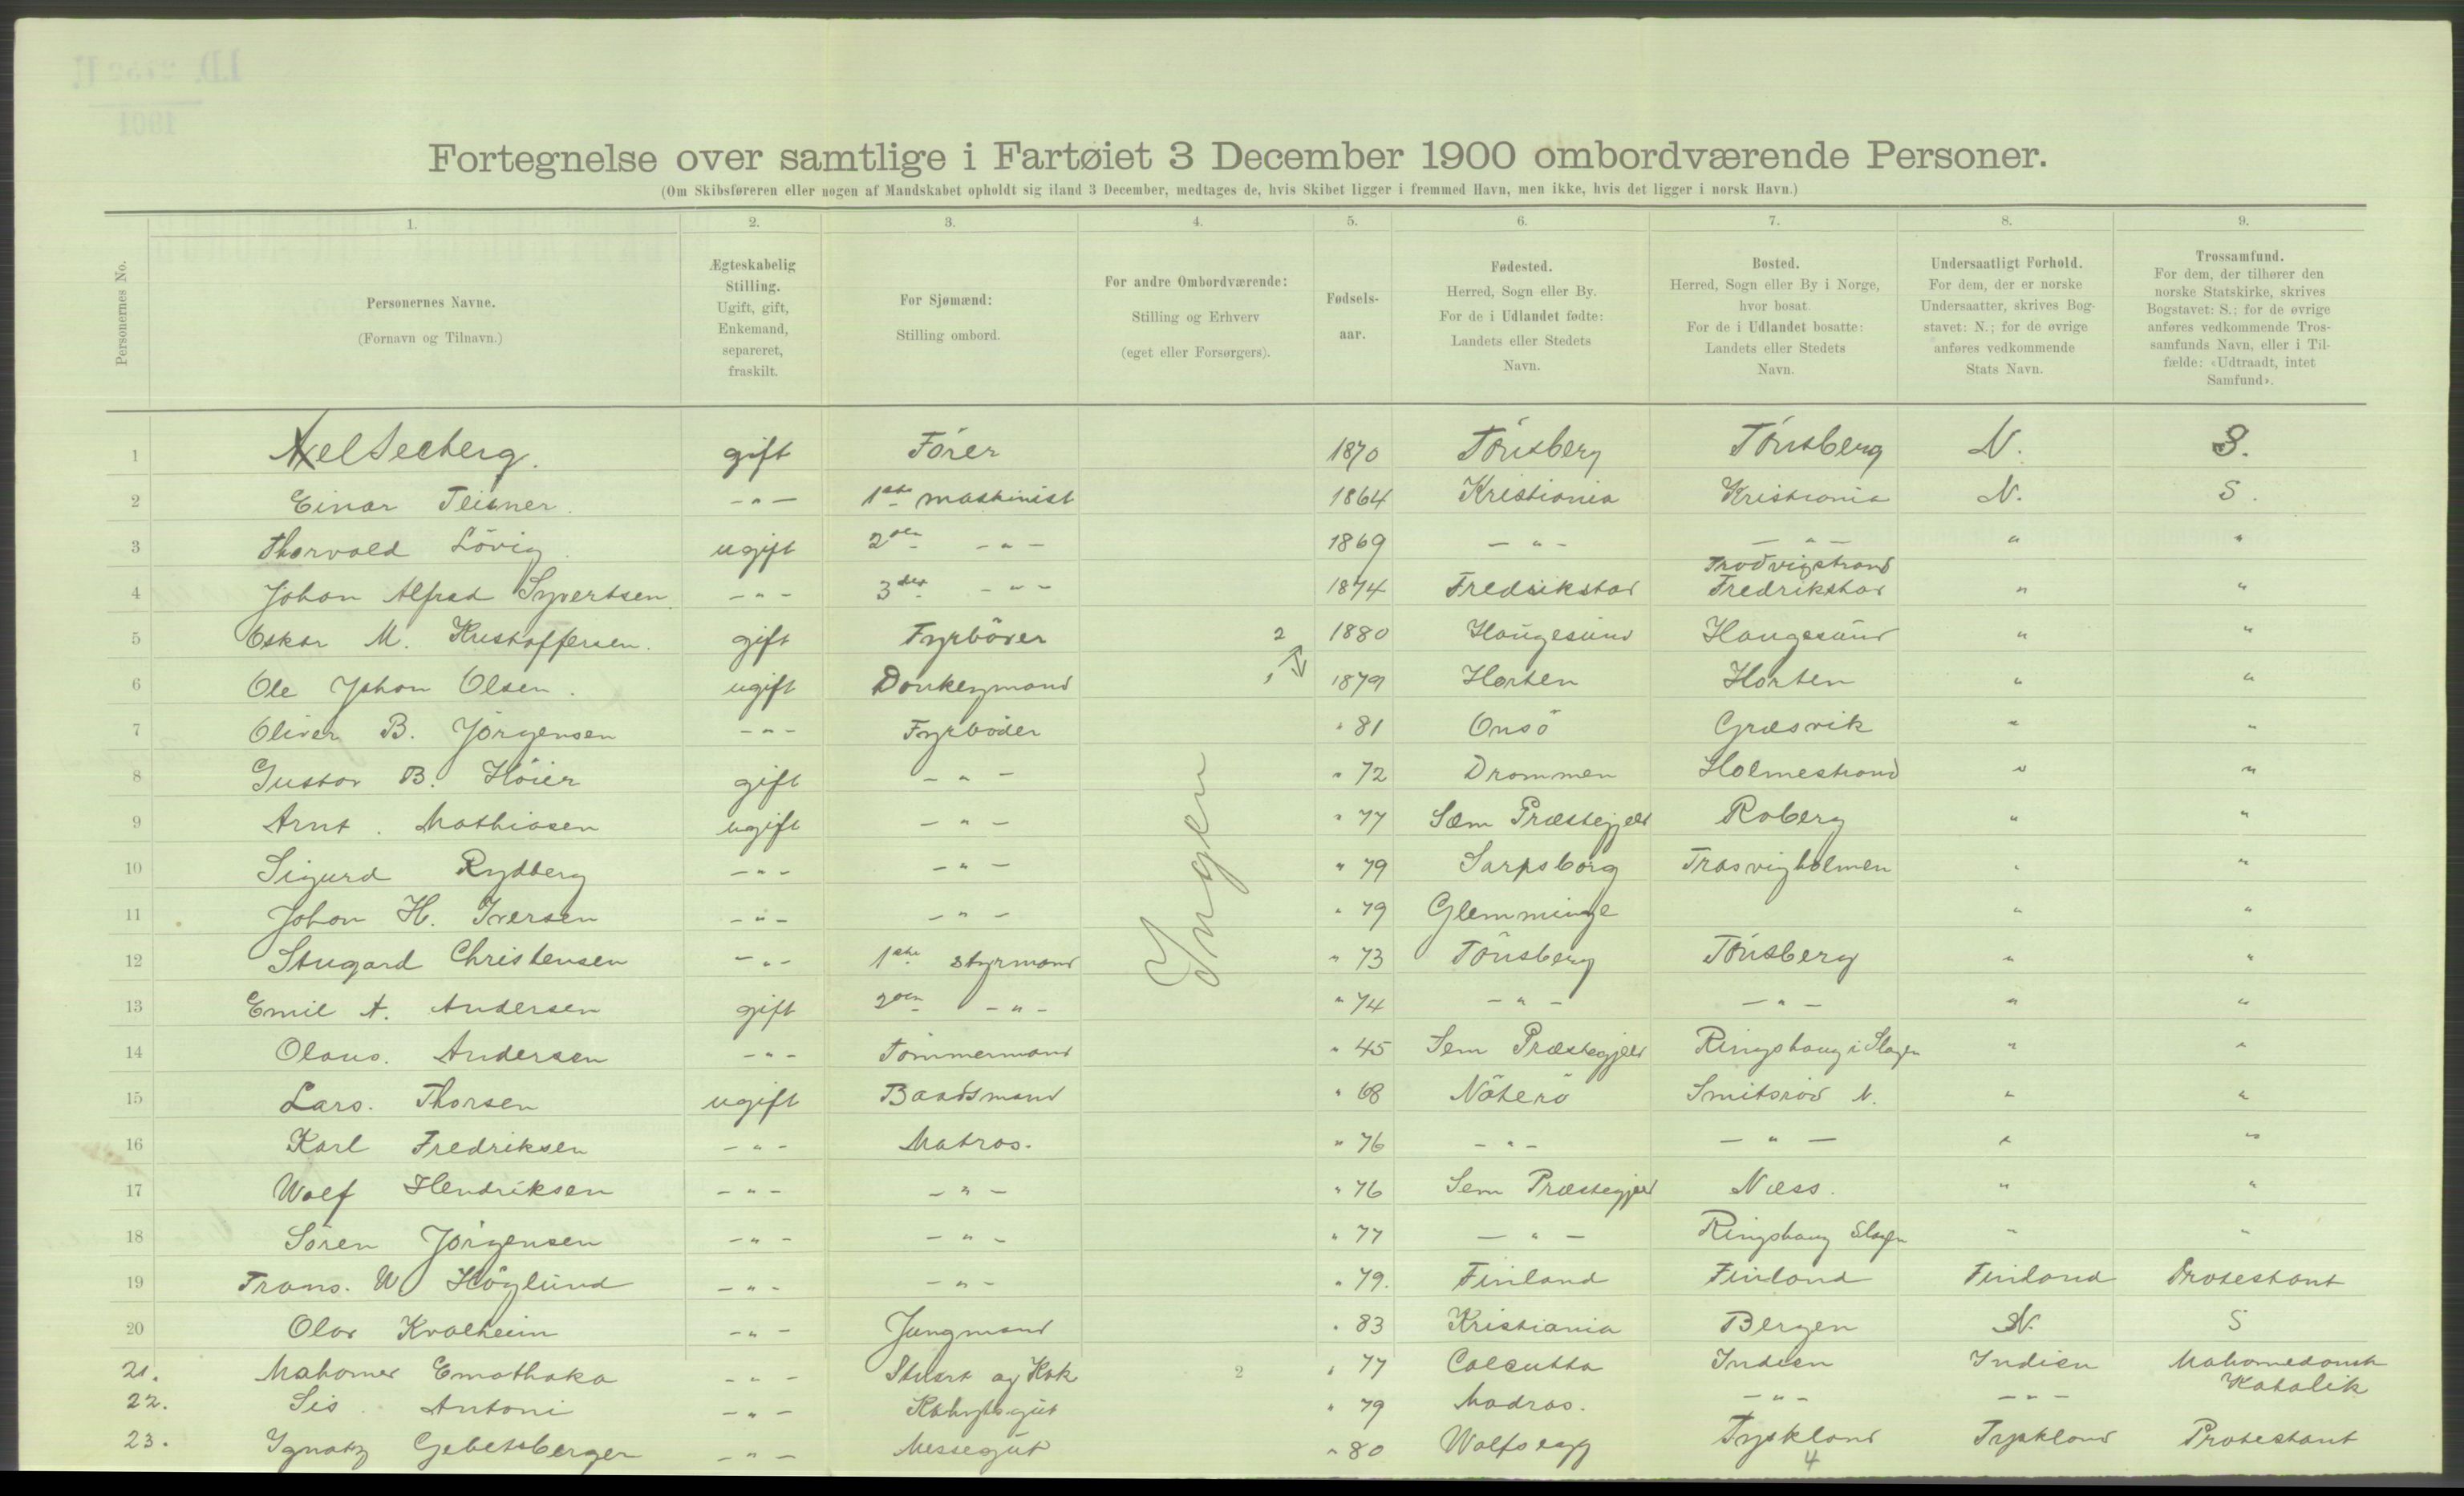 Fortegnelse over samtlige i Fartøiet 3 December 1900 ombordværende Personer.
(Om Skibsføreren eller nogen af Mandskabet opholdt sig iland 3 December, medtages de, hvis Skibet ligger i fremmed Havn, men ikke, hvis det ligger i norsk Havn.)
Personernes No.
1. 2. 3. 4. 5. 6. 7. 8. 9.
Personernes Navne.
(Fornavn og Tilnavn.)
Ægteskabelig
Stilling.
Ugift, gift,
Enkemand,
separeret,
fraskilt.
For Sjømænd:
Stilling ombord.
For andre Ombordværende:
Stilling og Erhverv
(eget eller Forsørgers).
Fødsels-
aar.
Fødested.
Herred, Sogn eller By.
For de i Udlandet fødte:
Landets eller Stedets
Navn.
Bosted.
Herred, Sogn eller By i Norge,
hvor bosat.
For de i Udlandet bosatte:
Landets eller Stedets
Navn.
Undersaatligt Forhold.
For dem, der er norske
Undersaatter, skrives Bog-
stavet: N.; for de øvrige
anføres vedkommende
Stats Navn.
Trossamfund.
For dem, der tilhører den
norske Statskirke, skrives
Bogstavet: S.; for de øvrige
anføres vedkommende Tros-
samfunds Navn, eller i Til-
fælde: «Udtraadt, intet
Samfund».
1 Axel Seeberg. gift Förer 1870 Tönsberg Tönsberg N. S.
2 Einar Teisner. -"- 1ste maskinist 1864 Kristiania Kristiania N. S.
3 Thorvald Lövig. ugift 2den -"- 1869 -"- -"- " "
Trodvigstrand
4 Johan Alfred Syvertsen. -"- 3die -"- 1874 Fredrikstad Fredrikstad " "
5 Oskar M. Kristoffersen. gift Fyrböder 2 1880 Haugesund Haugesund " "
6 Ole Johan Olsen. ugift Donkeymand 1 1879 Horten Horten " "
7 Oliver B. Jörgensen -"- Fyrböder " 81 Onsö Græsvik " "
8 Gustav B. Höier gift -"- " 72 Drammen Holmestrand " "
9 Arnt. Mathiasen ugift -"- " 77 Sem Præstegjeld Roberg " "
10 Sigurd Rydberg -"- -"- " 79 Sarpsborg Trosvigholmen " "
11 Johan H. Iversen -"- -"- " 79 Glemminge " "
12 Stugard Christensen -"- 1ste styrmand " 73 Tönsberg Tönsberg " "
13 Emil A. Andersen gift 2den -"- " 74 -"- -"- " "
14 Olaus. Andersen -"- Tömmermand " 45 Sem Præstegjeld Ringshaug i Slagen " "
15 Lars. Thorsen ugift Baadsmand " 68 Nöterö Smitsröd N. " "
16 Karl Fredriksen -"- Matros. " 76 -"- -"- " "
17 Wolf Hendriksen -"- -"- " 76 Sem Præstegjeld Næss. " "
18 Sören Jörgensen -"- -"- " 77 -"- Ringshaug Slagen " "
19 Frans. W Höglund -"- -"- " 79. Finland Finland Finland Protestant
20 Olav Kvalheim -"- Jungmand " 83 Kristiania Bergen N. S
21. Mahomed Emathaka -"- Stuert og Kok 2 " 77 Calcutta Indien Indien Mahomedansk
22. Sis Antoni -"- Kahytsgut " 79 Madras. -"- -"- Katolik
23. Ignatz Gebetsberger -"- Messegut " 80 Wolfsegg Tyskland Tyskland Protestant
4
Ingen